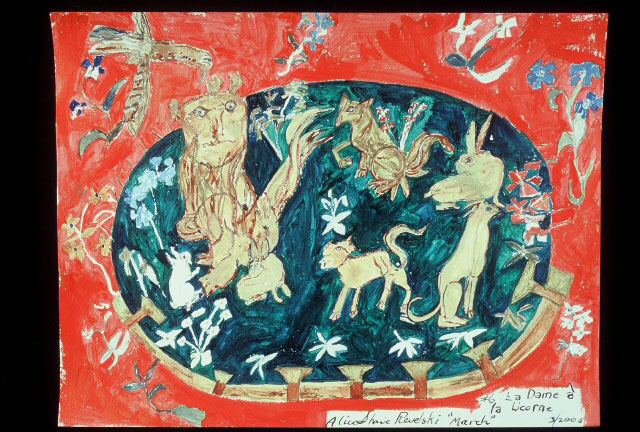 #6 "La Dame à
la Licorne
Alice Shave Revelski "March" 3/2006